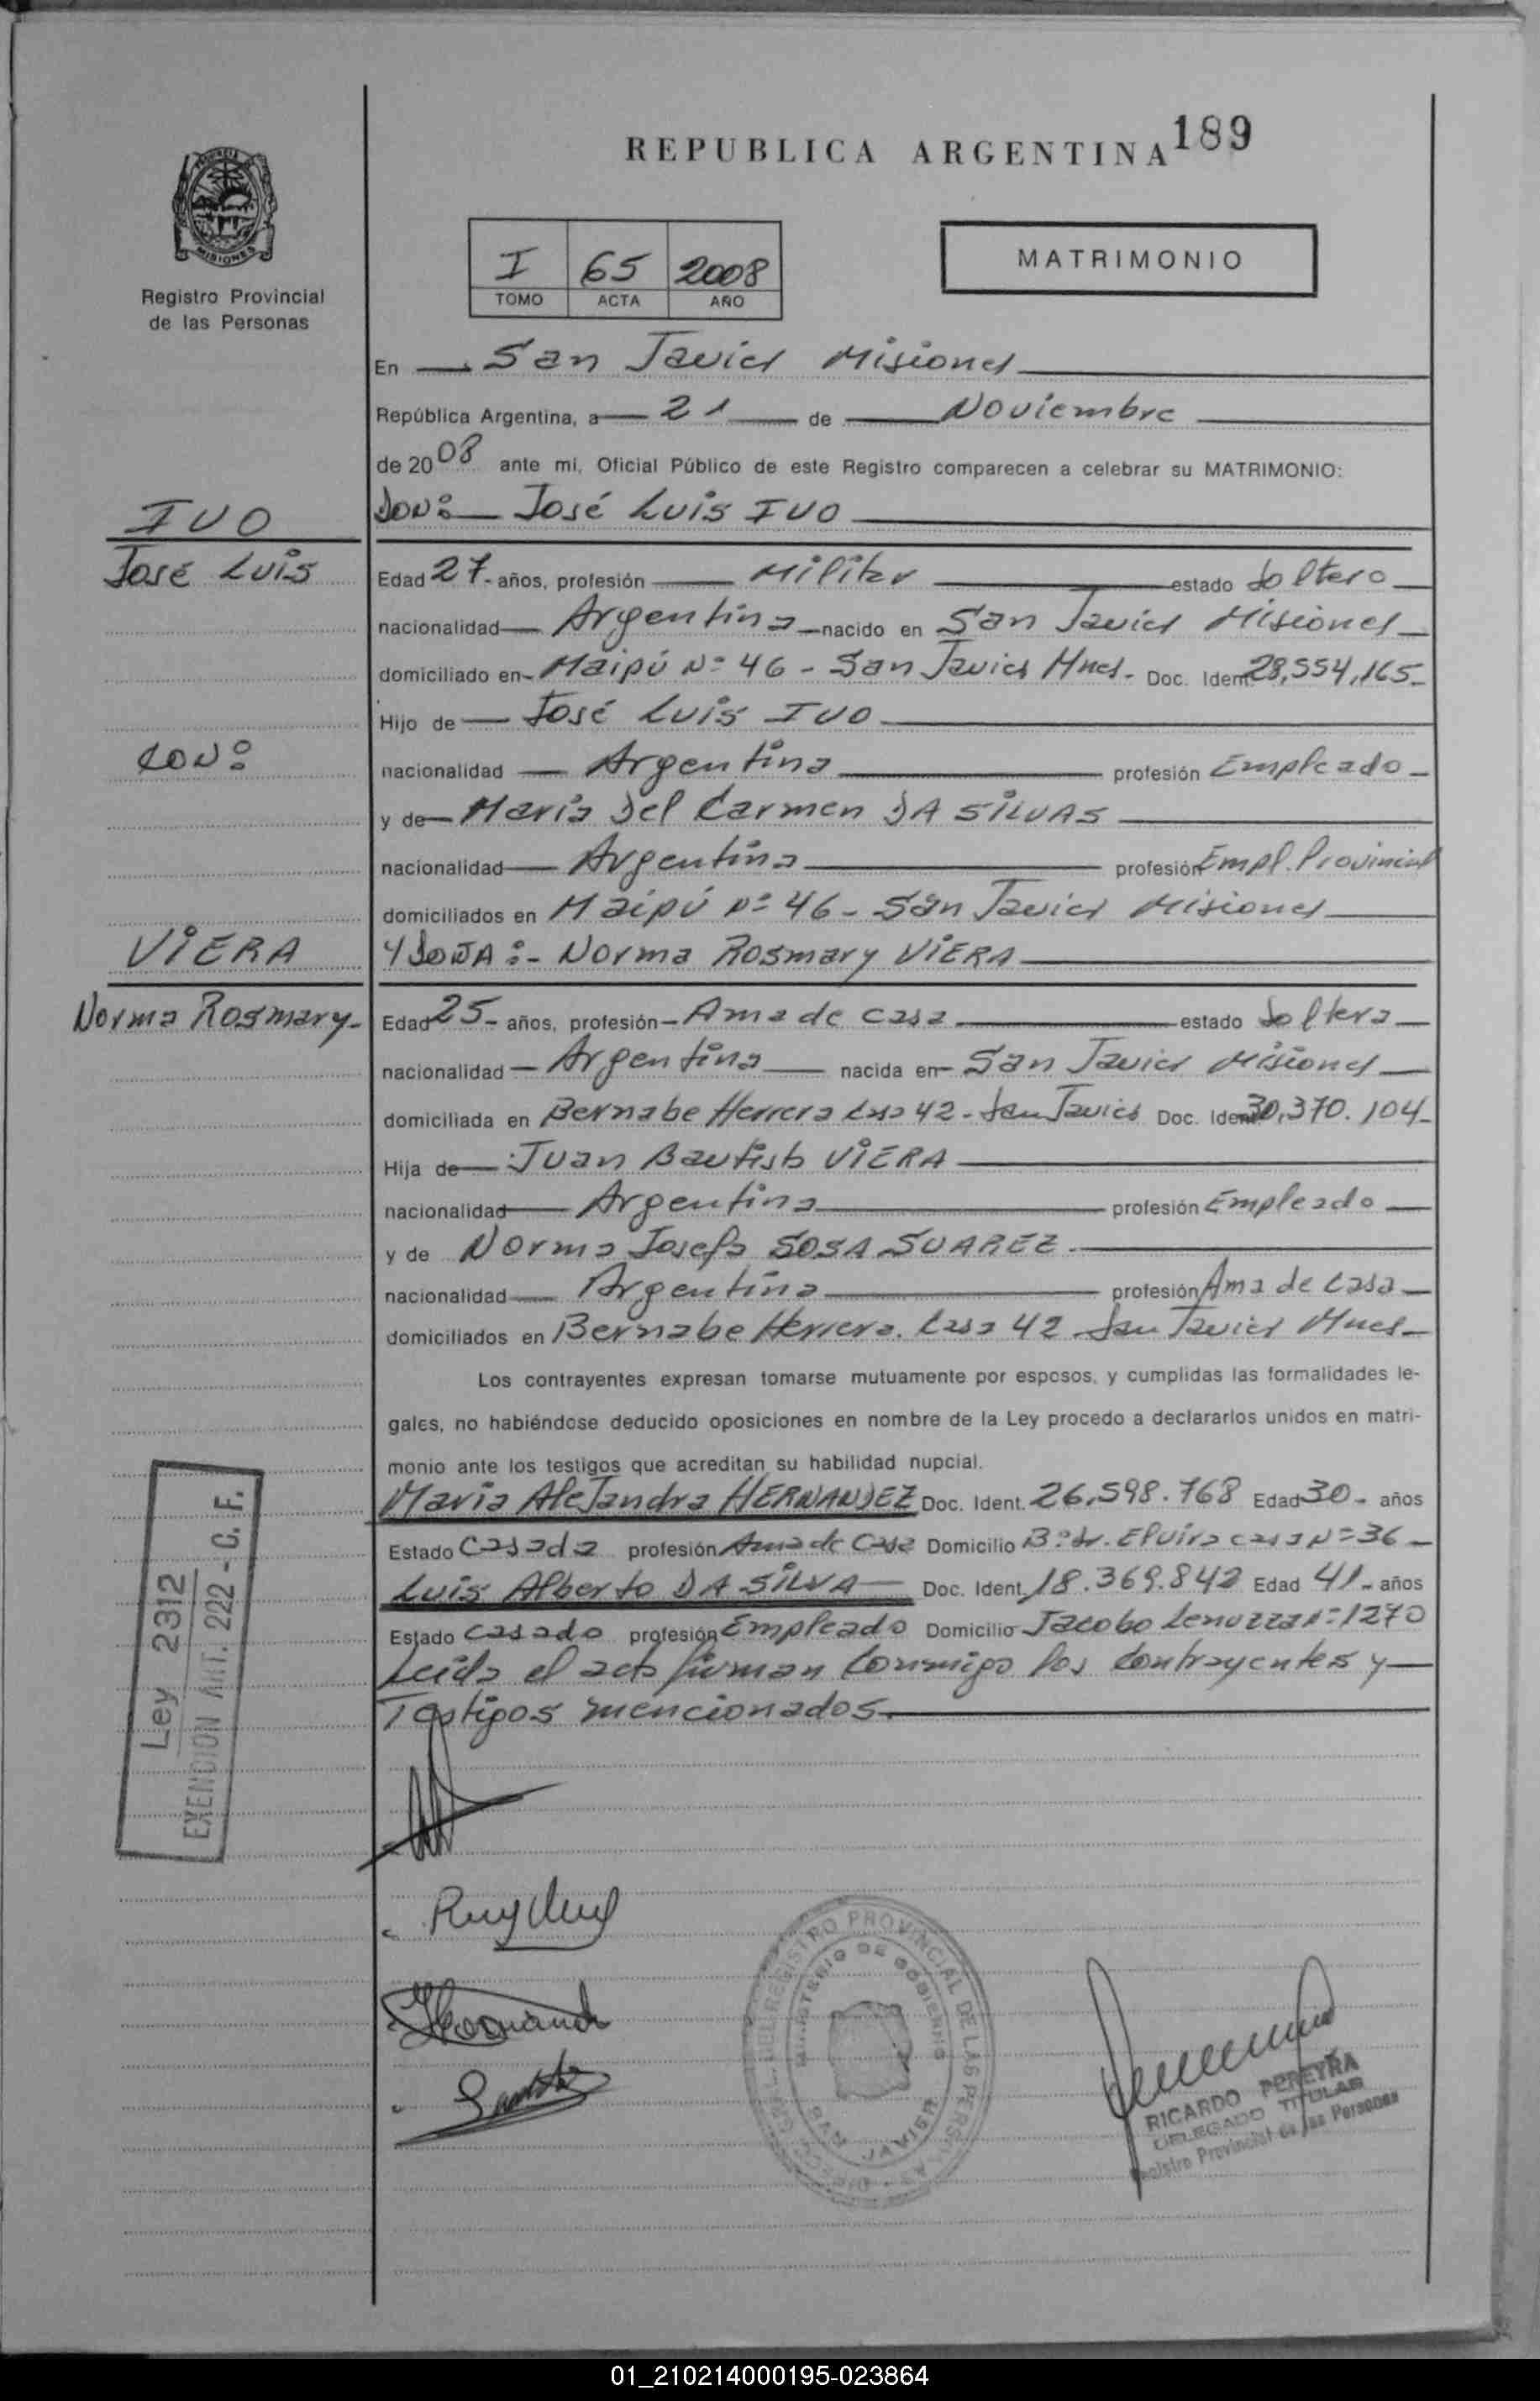 REPUBLICA ARGENTINA 189
MISIONES
Registro Provincial
de las Personas
I 65 2008
TOMO ACTA AÑO
MATRIMONIO
En San Javier Misiones
República Argentina, a 21 de Noviembre
de 2008 ante mi, Oficial Público de este Registro comparecen a celebrar su MATRIMONIO:
IVO
DON: José Luis IVO
José Luis
Edad 27- años, profesión Militar estado Soltero
nacionalidad Argentina nacido en San Javier Misiones
domiciliado en Maipú Nº 46 - San Javier Mnes. Doc. Ident. 28,554,165-
Hijo de José Luis IVO
CON:
nacionalidad Argentina profesión Empleado
y de María Del Carmen DA SILVAS
nacionalidad Argentina profesión Empl. Provincial
domiciliados en Maipú nº 46 - San Javier Misiones
VIERA
Y DOÑA:- Norma Rosmary VIERA
Norma Rosmary-
Edad 25- años, profesión Ama de casa estado Soltera
nacionalidad Argentina nacida en San Javier Misiones
domiciliada en Bernabe Herrera Casa 42 - San Javier Doc. Ident. 30,370.104-
Hija de Juan Bautista VIERA
nacionalidad Argentina profesión Empleado
y de Norma Josefa SOSA SUAREZ.
nacionalidad Argentina profesión Ama de Casa
domiciliados en Bernabe Herrera. Casa 42 San Javier Mnes-
Los contrayentes expresan tomarse mutuamente por esposos, y cumplidas las formalidades le-
gales, no habiéndose deducido oposiciones en nombre de la Ley procedo a declararlos unidos en matri-
monio ante los testigos que acreditan su habilidad nupcial.
María Alejandra HERNANDEZ Doc. Ident. 26,598.768 Edad 30- años
Estado Casada profesión Ama de Casa Domicilio Bº Sr. Elvira casa Nº 36
Luis Alberto DA SILVA Doc. Ident. 18.369.842 Edad 41- años
Estado Casado profesión Empleado Domicilio Jacobo 1270
Leída el acta firman Conmigo los Contrayentes y
Testigos mencionados.
Ley 2312
EXENCION ART. 222 - C. F.
DIRECCION GRAL. DEL REGISTRO PROVINCIAL DE LAS PERSONAS
MINISTERIO DE GOBIERNO
SAN JAVIER
RICARDO PEREYRA
DELEGADO TITULAR
Registro Provincial de las Personas
01_210214000195-023864